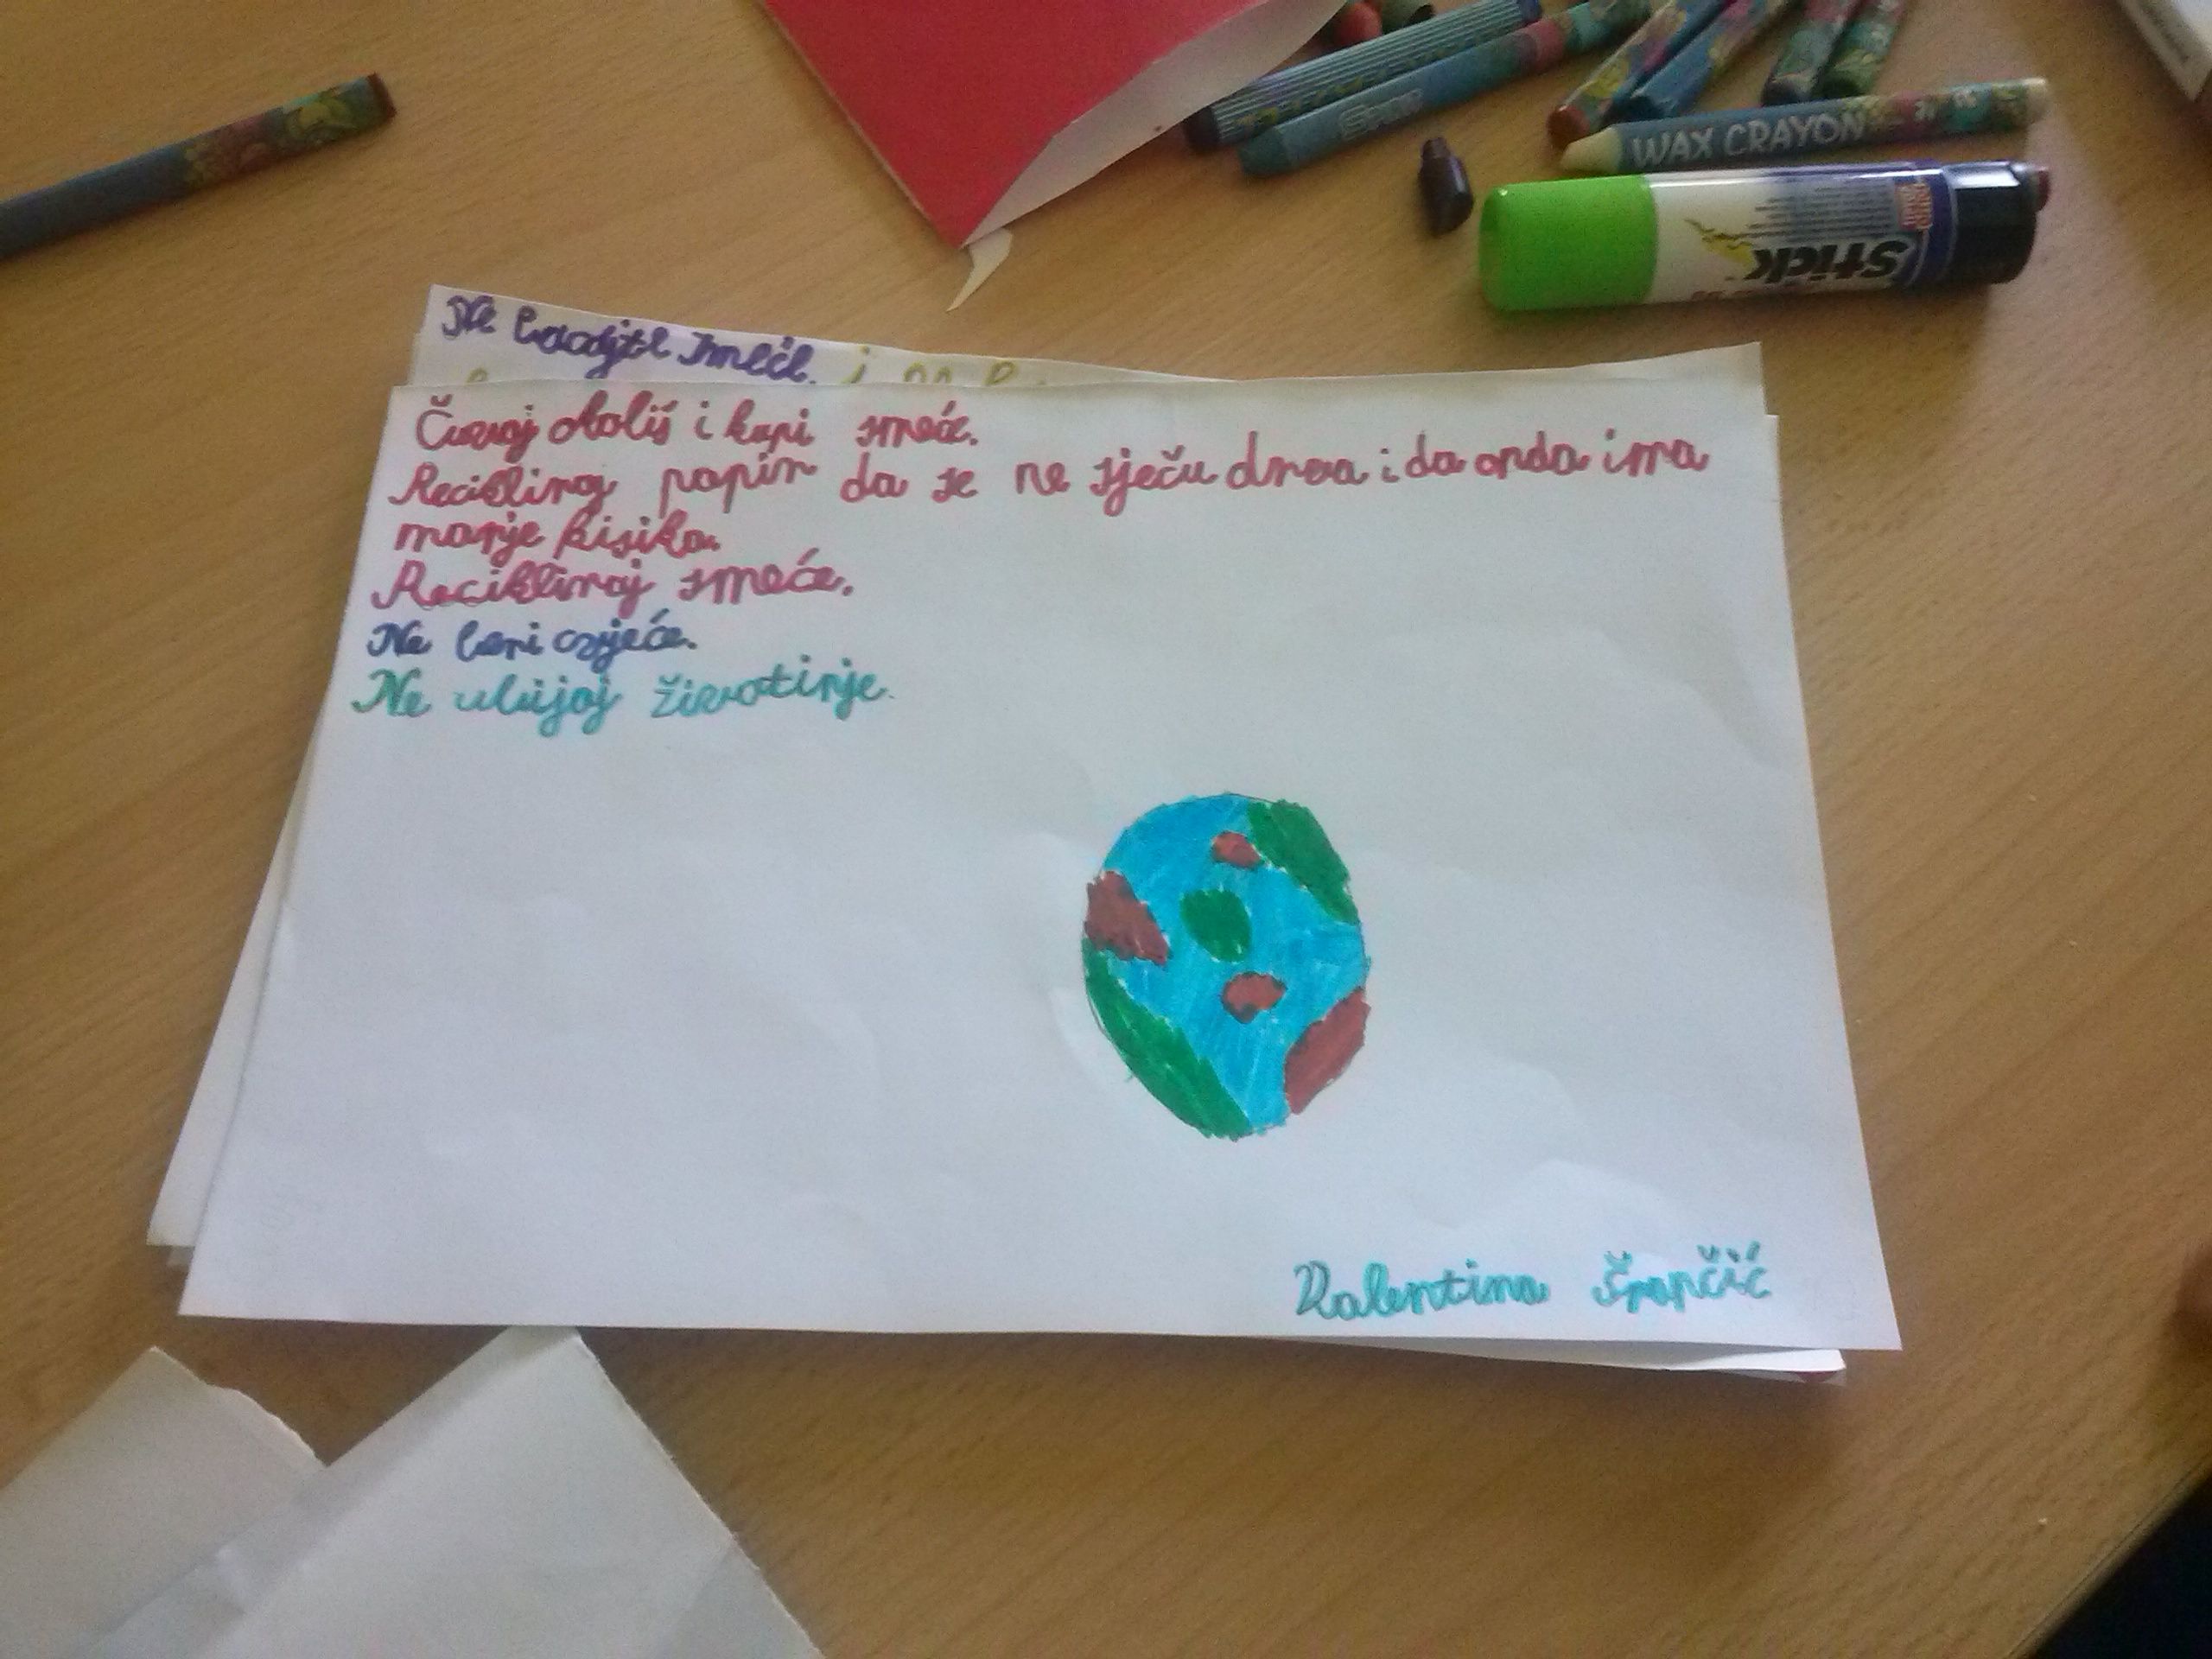 Ne bacajte smeće. i
Čuvaj okoliš i kupi smeće.
Recikliraj papir da se ne sječu drva i da onda ima
manje kisika.
Recikliraj smeće.
Ne beri cvjeće.
Ne ubijaj životinje.
Valentina
WAX CRAYON
Stick